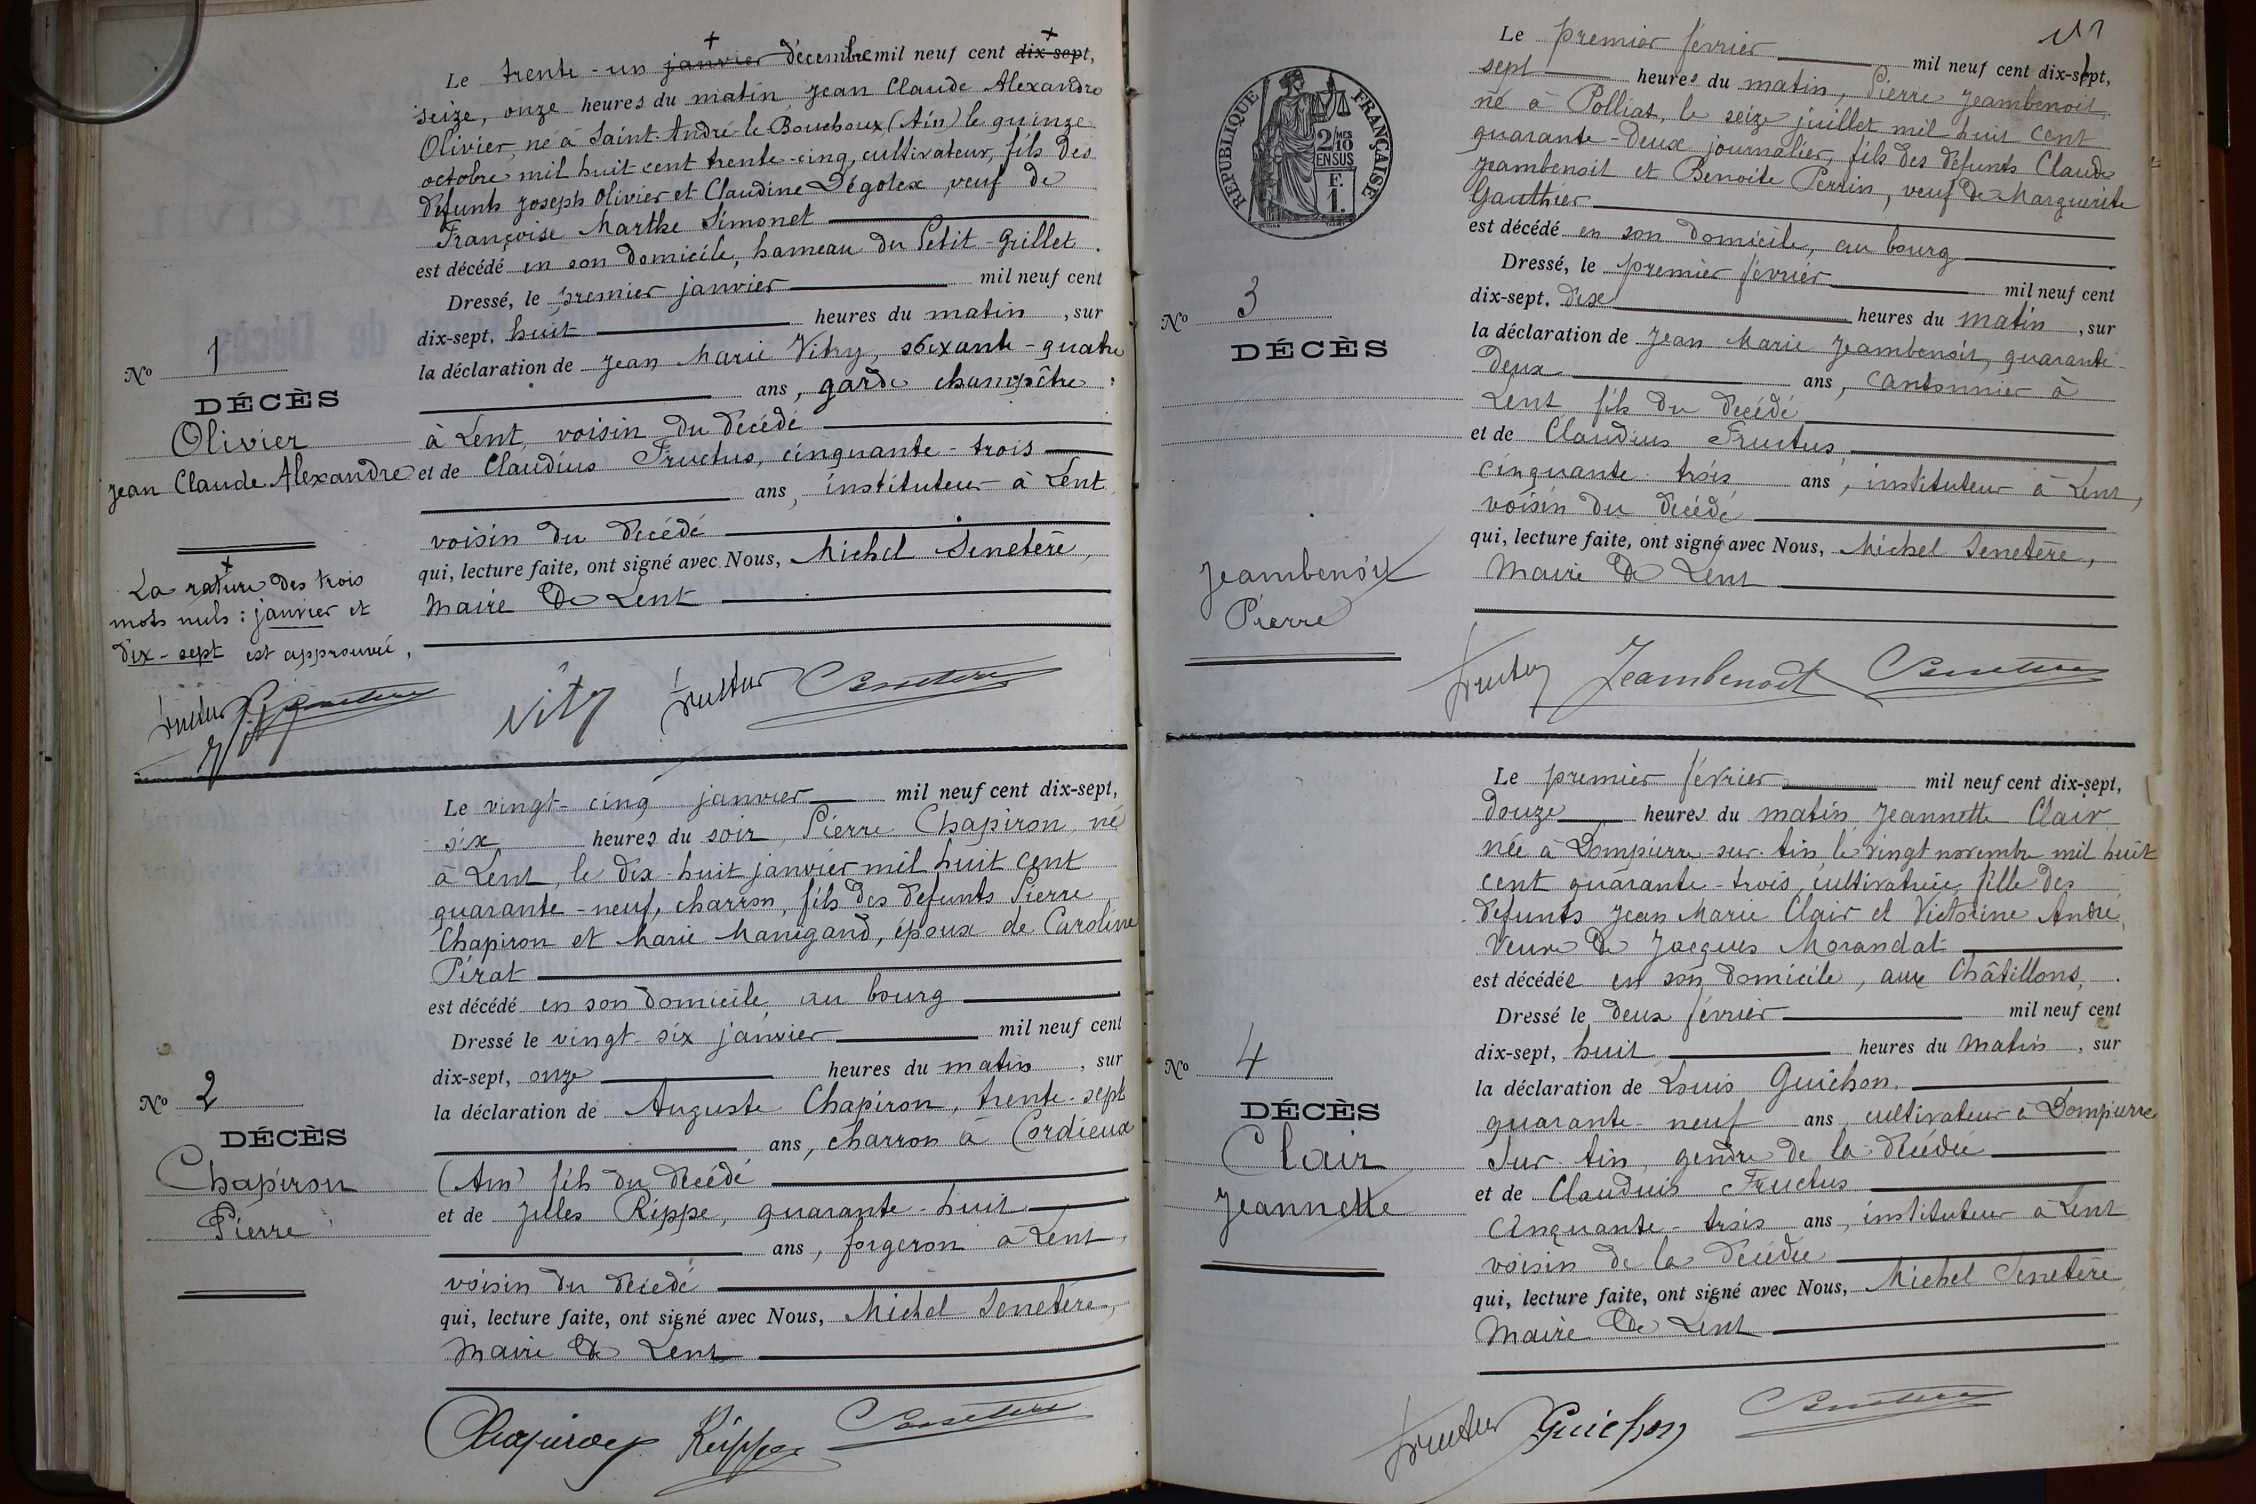 Le trente-un janvier décembre mil neuf cent dix-sept,
seize, onze heures du matin, Jean Claude Alexandre
Olivier, né à Saint-André-le-Bouchoux (Ain) le quinze
octobre mil huit cent trente-cinq, cultivateur, fils des
défunts Joseph Olivier et Claudine Dégolex, veuf de
Françoise Marthe Simonet
est décédé en son domicile, hameau du Petit-Grillet.
Dressé, le premier janvier mil neuf cent
dix-sept, huit heures du matin, sur
la déclaration de Jean Marie Vitry, soixante-quatre
ans, garde champêtre
à Lent, voisin du décédé
et de Claudius Fructus, cinquante-trois
ans, instituteur à Lent
voisin du décédé
qui, lecture faite, ont signé avec Nous, Michel Senetère,
Maire de Lent
No 1
DÉCÈS
Olivier
Jean Claude Alexandre
La rature des trois
mots nuls : janvier et
dix-sept est approuvée,
Fructus Senetère
Vitry Fructus Senetère
Le vingt-cinq janvier mil neuf cent dix-sept,
six heures du soir, Pierre Chapiron, né
à Lent, le dix-huit janvier mil huit cent
quarante-neuf, charron, fils des défunts Pierre
Chapiron et Marie Manigand, époux de Caroline
Pérat
est décédé en son domicile, au bourg
Dressé le vingt-six janvier mil neuf cent
dix-sept, onze heures du matin, sur
la déclaration de Auguste Chapiron, trente-sept
ans, charron à Cordieux
(Ain) fils du décédé
et de Jules Rippe, quarante-huit
ans, forgeron à Lent,
voisin du décédé
qui, lecture faite, ont signé avec Nous, Michel Senetère,
Maire de Lent
No 2
DÉCÈS
Chapiron
Pierre
Chapiron Rippe Senetère
RÉPUBLIQUE FRANÇAISE
2/10
EN SUS
F.
1.
Le premier février mil neuf cent dix-sept,
sept heures du matin, Pierre Jeambenoit,
né à Polliat, le seize juillet mil huit cent
quarante-deux journalier, fils des défunts Claude
Jeambenoit et Benoite Perrin, veuf de Marguerite
Gauthier
est décédé en son domicile, au bourg
Dressé, le premier février mil neuf cent
dix-sept, dix heures du matin, sur
la déclaration de Jean Marie Jeambenoit, quarante-
deux ans, cantonnier à
Lent fils du décédé
et de Claudius Fructus,
cinquante-trois ans, instituteur à Lent,
voisin du décédé
qui, lecture faite, ont signé avec Nous, Michel Senetère,
Maire de Lent
No 3
DÉCÈS
Jeambenoit
Pierre
Fructus Jeambenoit Senetère
Le premier février mil neuf cent dix-sept,
douze heures du matin Jeannette Clair
née à Dompierre-sur-Ain, le vingt novembre mil huit
cent quarante-trois, cultivatrice, fille des
défunts Jean Marie Clair et Victorine André,
Veuve de Jacques Morandat
est décédée en son domicile, aux Châtillons,
Dressé le deux février mil neuf cent
dix-sept, huit heures du matin, sur
la déclaration de Louis Guichon
quarante-neuf ans, cultivateur à Dompierre
sur-Ain, gendre de la décédée
et de Claudius Fructus
Cinquante-trois ans, instituteur à Lent
voisin de la décédée
qui, lecture faite, ont signé avec Nous, Michel Senetère
Maire de Lent
No 4
DÉCÈS
Clair
Jeannette
Fructus Guichon Senetère